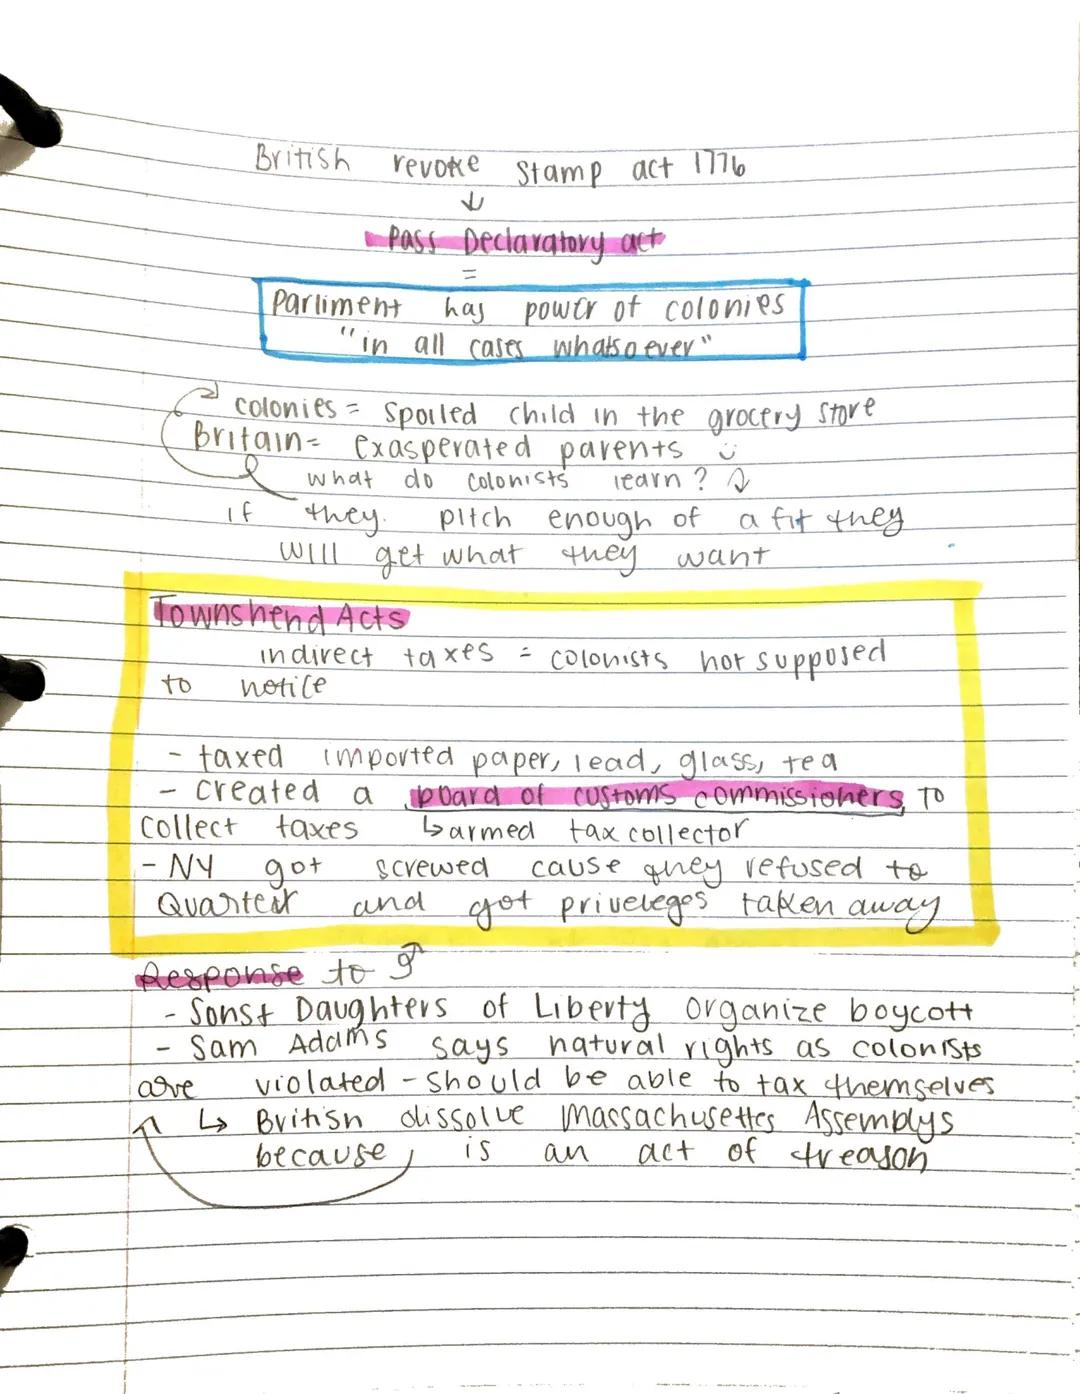 British revoke Stamp act 1776
↓
Pass Declaratory act
=
Parliment has power of colonies
"in all cases whatsoever"
colonies = spoiled child in the grocery store
Britain = exasperated parents
what do colonists learn?
if they pitch enough of a fit they
will get what they want
Townshend Acts
indirect taxes = colonists not supposed
to notice
- taxed imported paper, lead, glass, tea
- created a board of customs commissioners, to
collect taxes ↳ armed tax collector
- NY got screwed cause they refused to
Quarter and got priveleges taken away
Response to ↗
- Sons + Daughters of Liberty organize boycott
- Sam Adams says natural rights as colonists
are violated - should be able to tax themselves
↳ British dissolve Massachusettes Assemblys
because is an act of treason